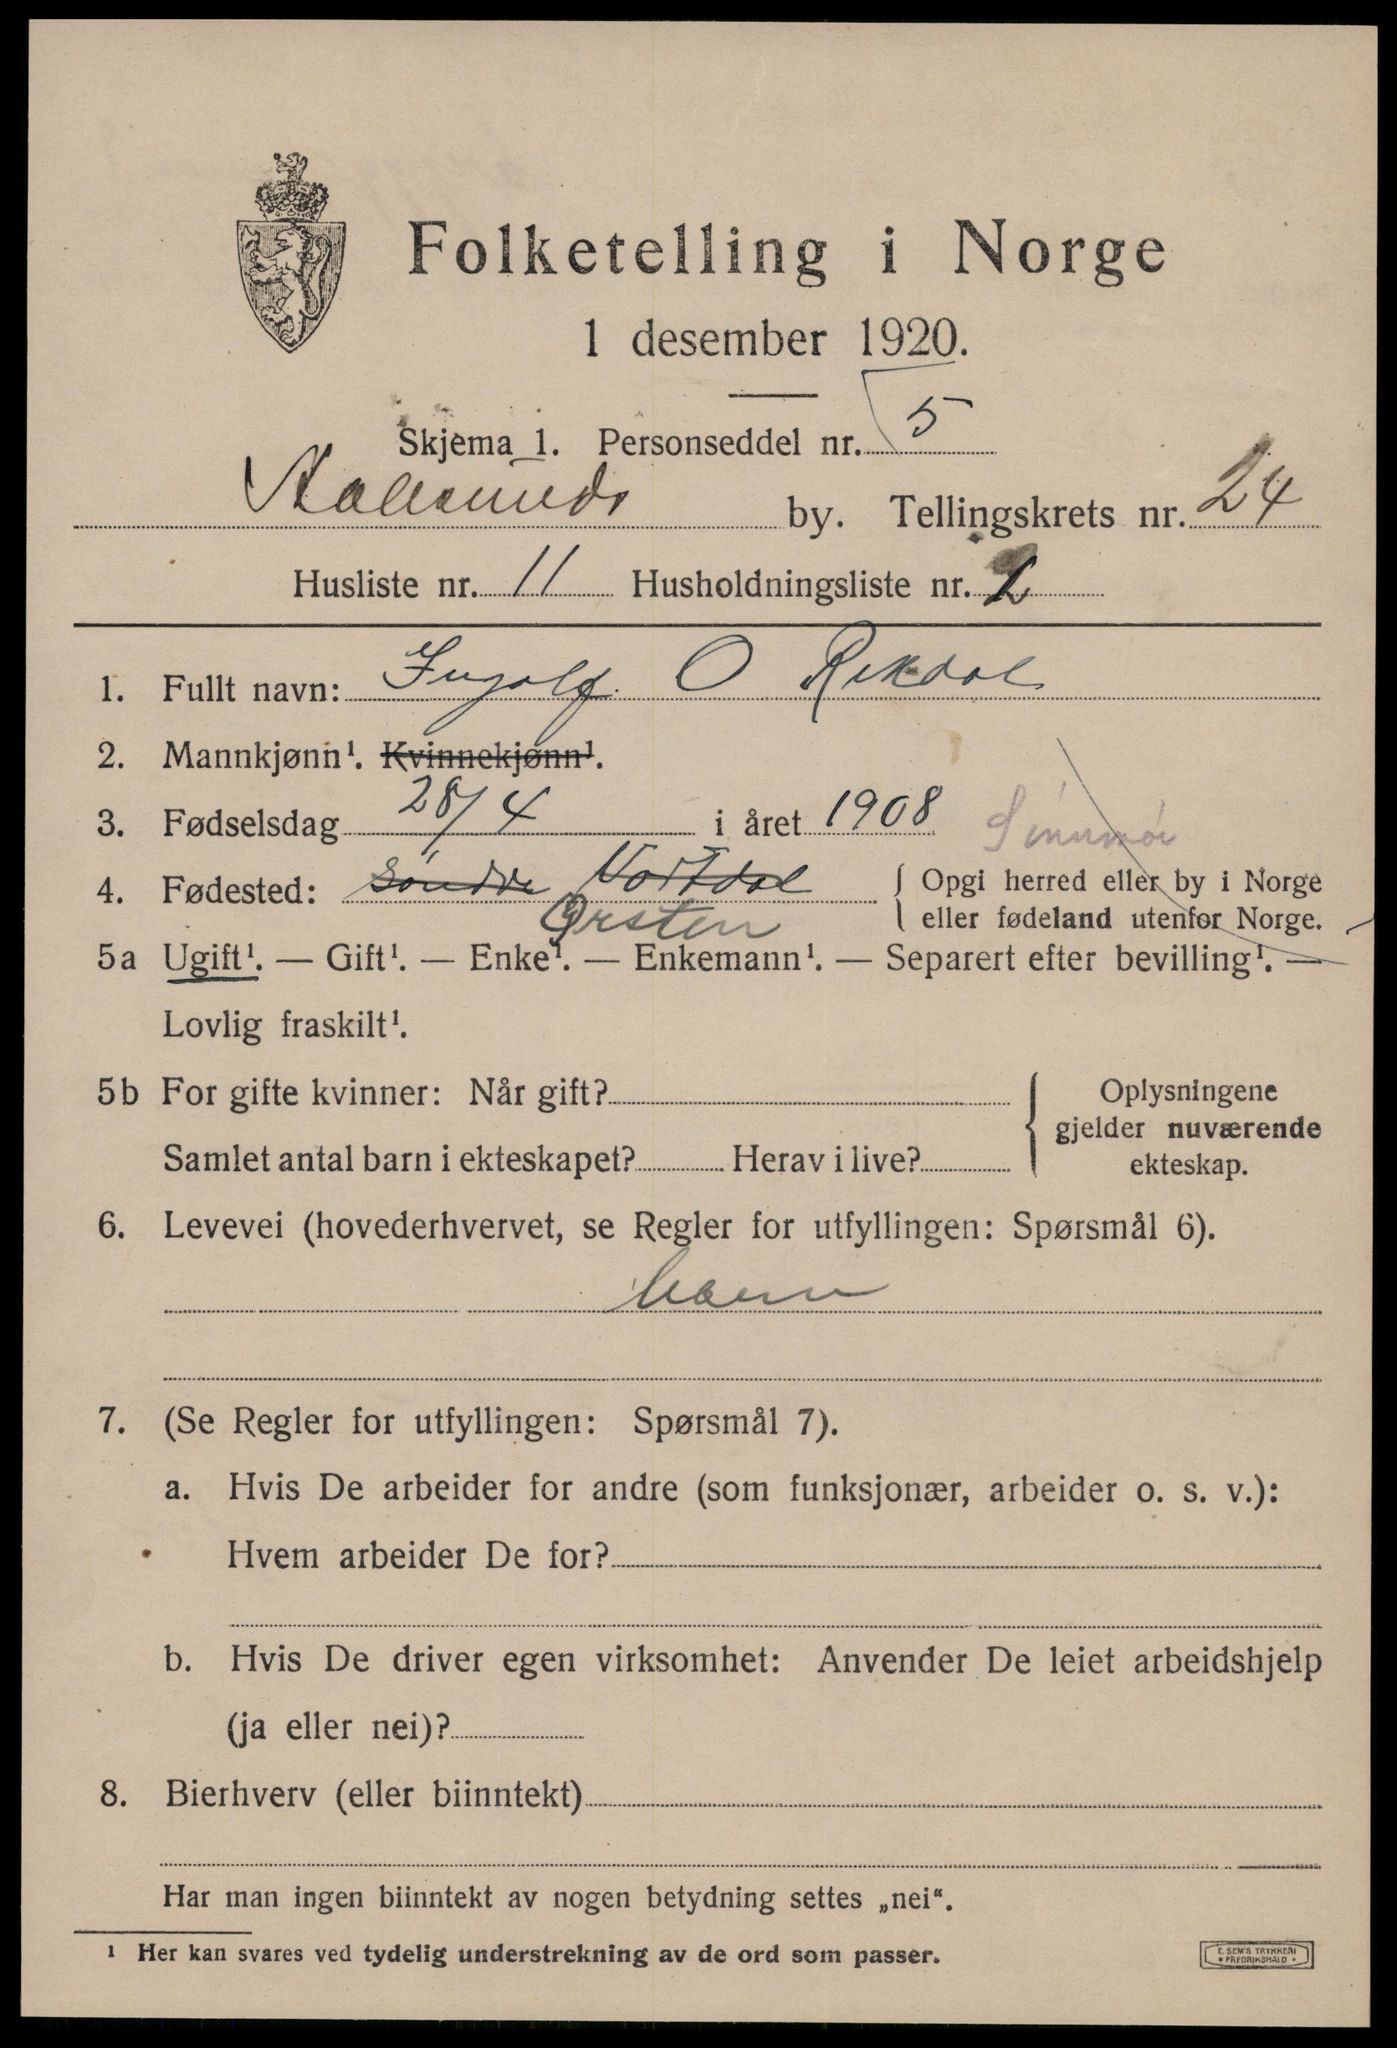 Folketelling i Norge
1 desember 1920.
Skjema 1. Personseddel nr. 5
Aalesunds by. Tellingskrets nr. 24
Husliste nr. 11 Husholdningsliste nr. 2
1. Fullt navn: Ingolf O Rekdal
2. Mannkjønn¹. Kvinnekjønn¹.
3. Fødselsdag 28/4 i året 1908 Sönnmör
4. Fødested: söndre Vartdal { Opgi herred eller by i Norge
Ørsten { eller fødeland utenfor Norge.
5a Ugift¹. — Gift¹. — Enke¹. — Enkemann¹. — Separert efter bevilling¹. —
Lovlig fraskilt¹.
5b For gifte kvinner: Når gift? { Oplysningene
gjelder nuværende
Samlet antal barn i ekteskapet? Herav i live? ekteskap.
6. Levevei (hovederhvervet, se Regler for utfyllingen: Spørsmål 6).
7. (Se Regler for utfyllingen: Spørsmål 7).
a. Hvis De arbeider for andre (som funksjonær, arbeider o. s. v.):
Hvem arbeider De for?
b. Hvis De driver egen virksomhet: Anvender De leiet arbeidshjelp
(ja eller nei)?
8. Bierhverv (eller biinntekt)
Har man ingen biinntekt av nogen betydning settes „nei“.
¹ Her kan svares ved tydelig understrekning av de ord som passer.
E. SEM'S TRYKKERI
• FREDRIKSHALD •